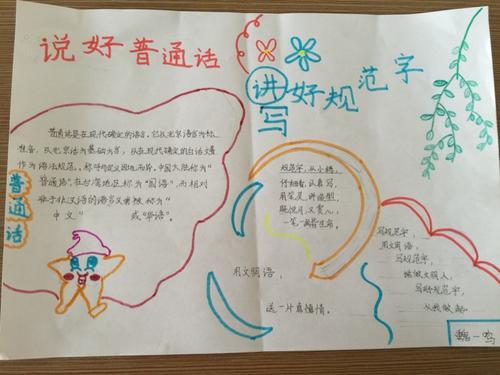 说好普通话
讲
写好规范字
普通话是在现代确定的语言。它以北京语音为标
准音，以北京话为基础方言，以在现代确定的白话文著
作为语法规范。称呼因定义因地而异，中国大陆称为"
普通话"，在台湾地区称为"国语"，而相对
于
中文" 或"华语"。
普通话
规范字，从小练，
仔细看，认真写，
用笔灵，讲造型，
既悦目，又赏心，
一笔一画
用文明语，
送一片真情。
写规范字，
用文明语，
写规范字，
做文明人，
写好规范字，
从我做起。
魏一鸣